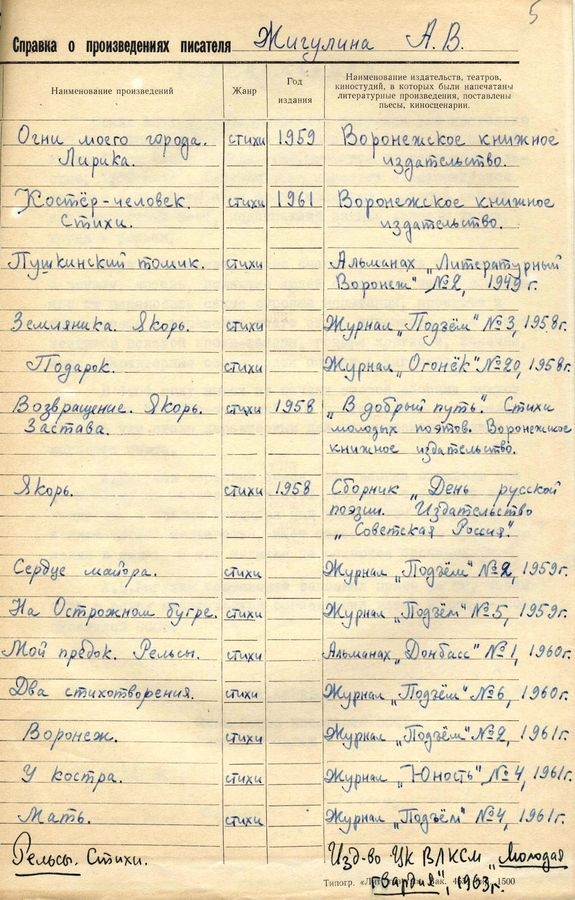 5
Справка о произведениях писателя Жигулина А. В.
Наименование произведений
Жанр
Год
издания
Наименование издательств, театров,
киностудий, в которых были напечатаны
литературные произведения, поставлены
пьесы, киносценарии.
Огни моего города. стихи 1959 Воронежское книжное
Лирика. издательство.
Костёр-человек. стихи 1961 Воронежское книжное
Стихи. издательство.
Пушкинский томик. стихи Альманах „Литературный
Воронеж" №2, 1949 г.
Земляника. Якорь. стихи Журнал „Подъём" №3, 1958г.
Подарок. стихи Журнал „Огонёк" №20, 1958г.
Возвращение. Якорь. стихи 1958 „В добрый путь". Стихи
Застава. молодых поэтов. Воронежское
книжное издательство.
Якорь. стихи 1958 Сборник „День русской
поэзии. Издательство
„Советская Россия".
Сердце майора. стихи Журнал „Подъём" №2, 1959г.
На Острожном бугре. стихи Журнал „Подъём" №5, 1959г.
Мой предок. Рельсы. стихи Альманах „Донбасс" №1, 1960г.
Два стихотворения. стихи Журнал „Подъём" №6, 1960г.
Воронеж. стихи Журнал „Подъём" №2, 1961г.
У костра. стихи Журнал „Юность" №4, 1961г.
Мать. стихи Журнал „Подъём" №4, 1961г.
Рельсы. Стихи. Изд-во ЦК ВЛКСМ „Молодая
гвардия", 1963г.
Типогр. 1500